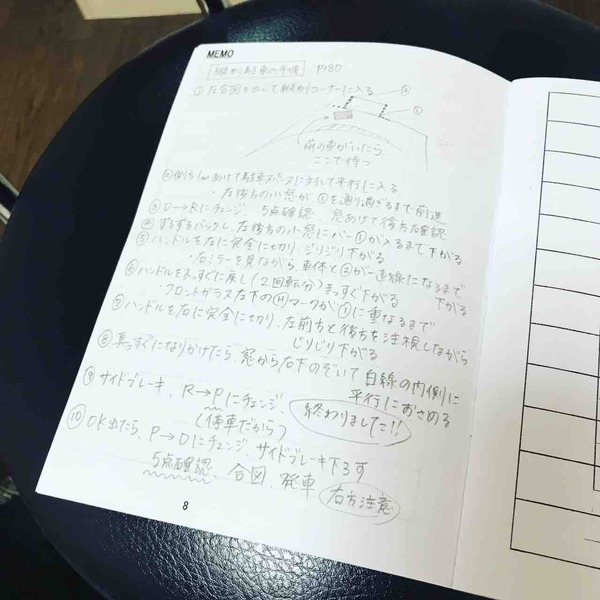 MEMO
縦列駐車の手順 P180
① 左合図を出して縦列コーナーに入る
②
①
前の車がいたら
ここで待つ
② 側方1mあけて駐車スペースに対して平行に入る
・左後方の小窓が①を通り過ぎるまで前進
③ D→Rにチェンジ、5点確認、窓あけて後方確認
④ ずるずるバックし、左後方の小窓にバー①が入るまで下がる
⑤ ハンドルを左に完全に切り、ジリジリ下がる
・右ミラーを見ながら、車体と②が一直線になるまで
下がる
⑥ ハンドルをまっすぐに戻し(2回転分)まっすぐ下がる
・フロントガラス左下のマークが①に重なるまで
⑦ ハンドルを右に完全に切り、左前方と後方を注視しながら
じりじり下がる
⑧ 真っすぐになりかけたら、窓から右下のぞいて白線の内側に
平行におさめる
⑨ サイドブレーキ、R→Pにチェンジ、終わりました!!
(停車だから)
⑩ OK出たら、P→Dにチェンジ、サイドブレーキ下ろす
5点確認、合図、発車 右方注意
8